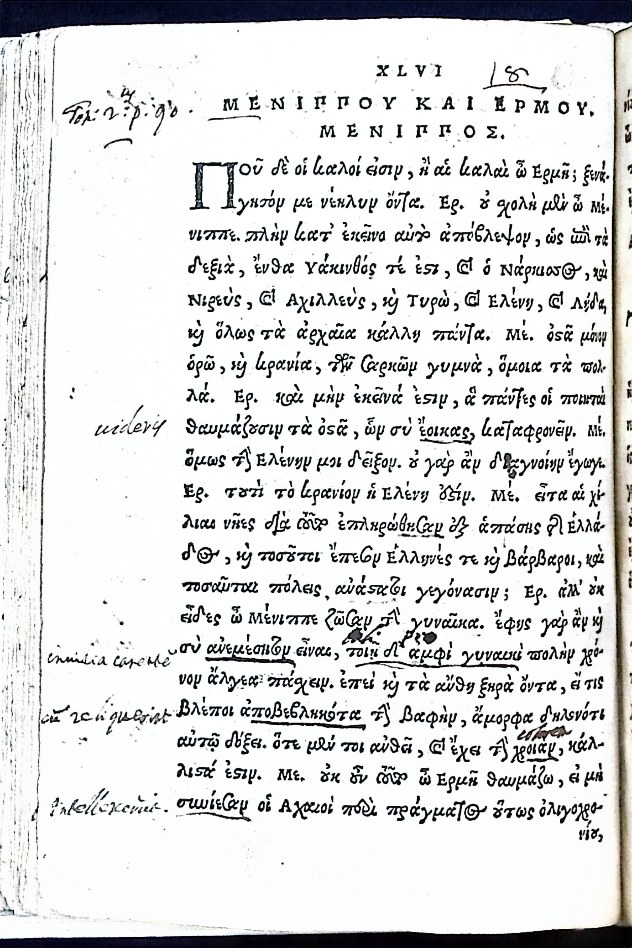 XLVI 18
ΜΕΝΙΠΠΟΥ ΚΑΙ ΕΡΜΟΥ.
ΜΕΝΙΠΠΟΣ.
Ποῦ δὲ οἱ καλοί εἰσιν, ἢ αἱ καλαὶ ὦ Ερμῆ; ξενά-
γησόν με νέηλυν ὄντα. Ερ. οὐ χολὴ μὲν ὦ Μέ-
νιππε. πλὴν κατ' ἐκεῖνο αὐτὸ ἀπόβλεψον, ὡς ἐπὶ τὰ
δεξιὰ, ἔνθα Υάκινθός τέ ἐστι, καὶ ὁ Νάρκισσος, καὶ
Νιρεύς, καὶ Αχιλλεύς, καὶ Τυρὼ, καὶ Ελένη, καὶ Λήδα,
καὶ ὅλως τὰ ἀρχαῖα κάλλη πάντα. Με. ὀστᾶ μόνον
ὁρῶ, καὶ κρανία, τῶν σαρκῶν γυμνὰ, ὅμοια τὰ πολ-
λά. Ερ. καὶ μὴν ἐκεῖνά ἐστιν, ἃ πάντες οἱ ποιηταὶ
uideris θαυμάζουσιν τὰ ὀστᾶ, ὧν σὺ ἔοικας, καταφρονεῖν. Με.
ὅμως τὴν Ελένην μοι δεῖξον. οὐ γὰρ ἂν διαγνοίην ἔγωγε.
Ερ. τουτὶ τὸ κρανίον ἡ Ελένη ἐστίν. Με. εἶτα αἱ χί-
λιαι νῆες διὰ τοῦτο ἐπληρώθησαν ἐξ ἁπάσης τῆς Ελλά-
δος, καὶ τοσοῦτοι ἔπεσον Ελληνές τε καὶ Βάρβαροι, καὶ
τοσαῦται πόλεις ἀνάστατοι γεγόνασιν; Ερ. ἀλλ' οὐκ
εἶδες ὦ Μένιππε ζῶσαν τὴν γυναῖκα. ἔφης γὰρ ἂν καὶ
σὺ ἀνεμέσητον εἶναι, τοιῇ δ' ἀμφὶ γυναικὶ πολὺν χρό-
νον ἄλγεα πάσχειν. ἐπεὶ καὶ τὰ ἄνθη ξηρὰ ὄντα, εἴ τις
βλέποι ἀποβεβληκότα τὴν βαφὴν, ἄμορφα δηλονότι
αὐτῷ δόξει. ὅτε μέν τοι ἀνθεῖ, καὶ ἔχει τὴν χροιὰν, κάλ-
λιστά ἐστιν. Με. οὐκ οὖν τοῦτο ὦ Ερμῆ θαυμάζω, εἰ μὴ
συνίεσαν οἱ Αχαιοὶ περὶ πράγματος οὕτως ὀλιγοχρο-
νίου,